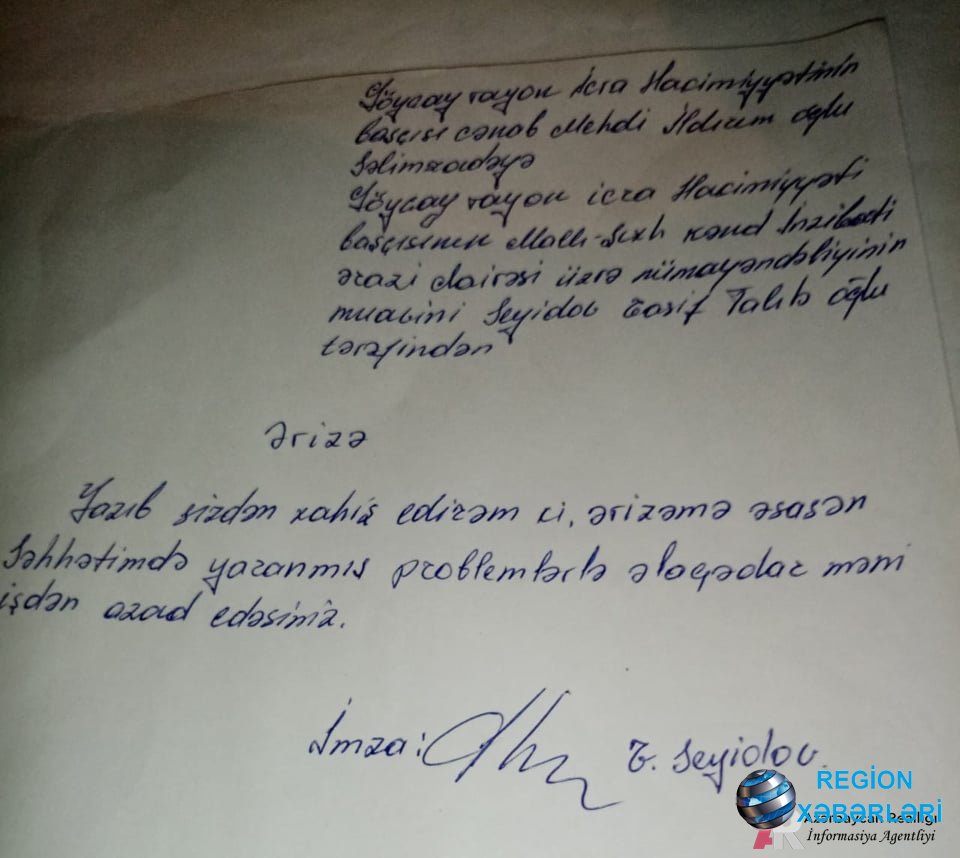 Göyçay rayon İcra Hacimiyyətinin
başçısı cənab Mehdi İldırım oğlu
Səlimzadəyə
Göyçay rayon icra Hacimiyyəti
başçısının Mallı-Şıxlı kənd İnzibati
ərazi dairəsi üzrə nümayəndəliyinin
muavini Seyidov Tasif Talıb oğlu
tərəfindən
Ərizə
Yazıb sizdən xahiş edirəm ki, ərizəmə əsasən
Səhhətimdə yaranmış problemlərlə əlaqədar məni
işdən azad edəsiniz.
İmza: T. Seyidov.
REGİON
XƏBƏRLƏRİ
Azərbaycan Reallığı
İnformasiya Agentliyi